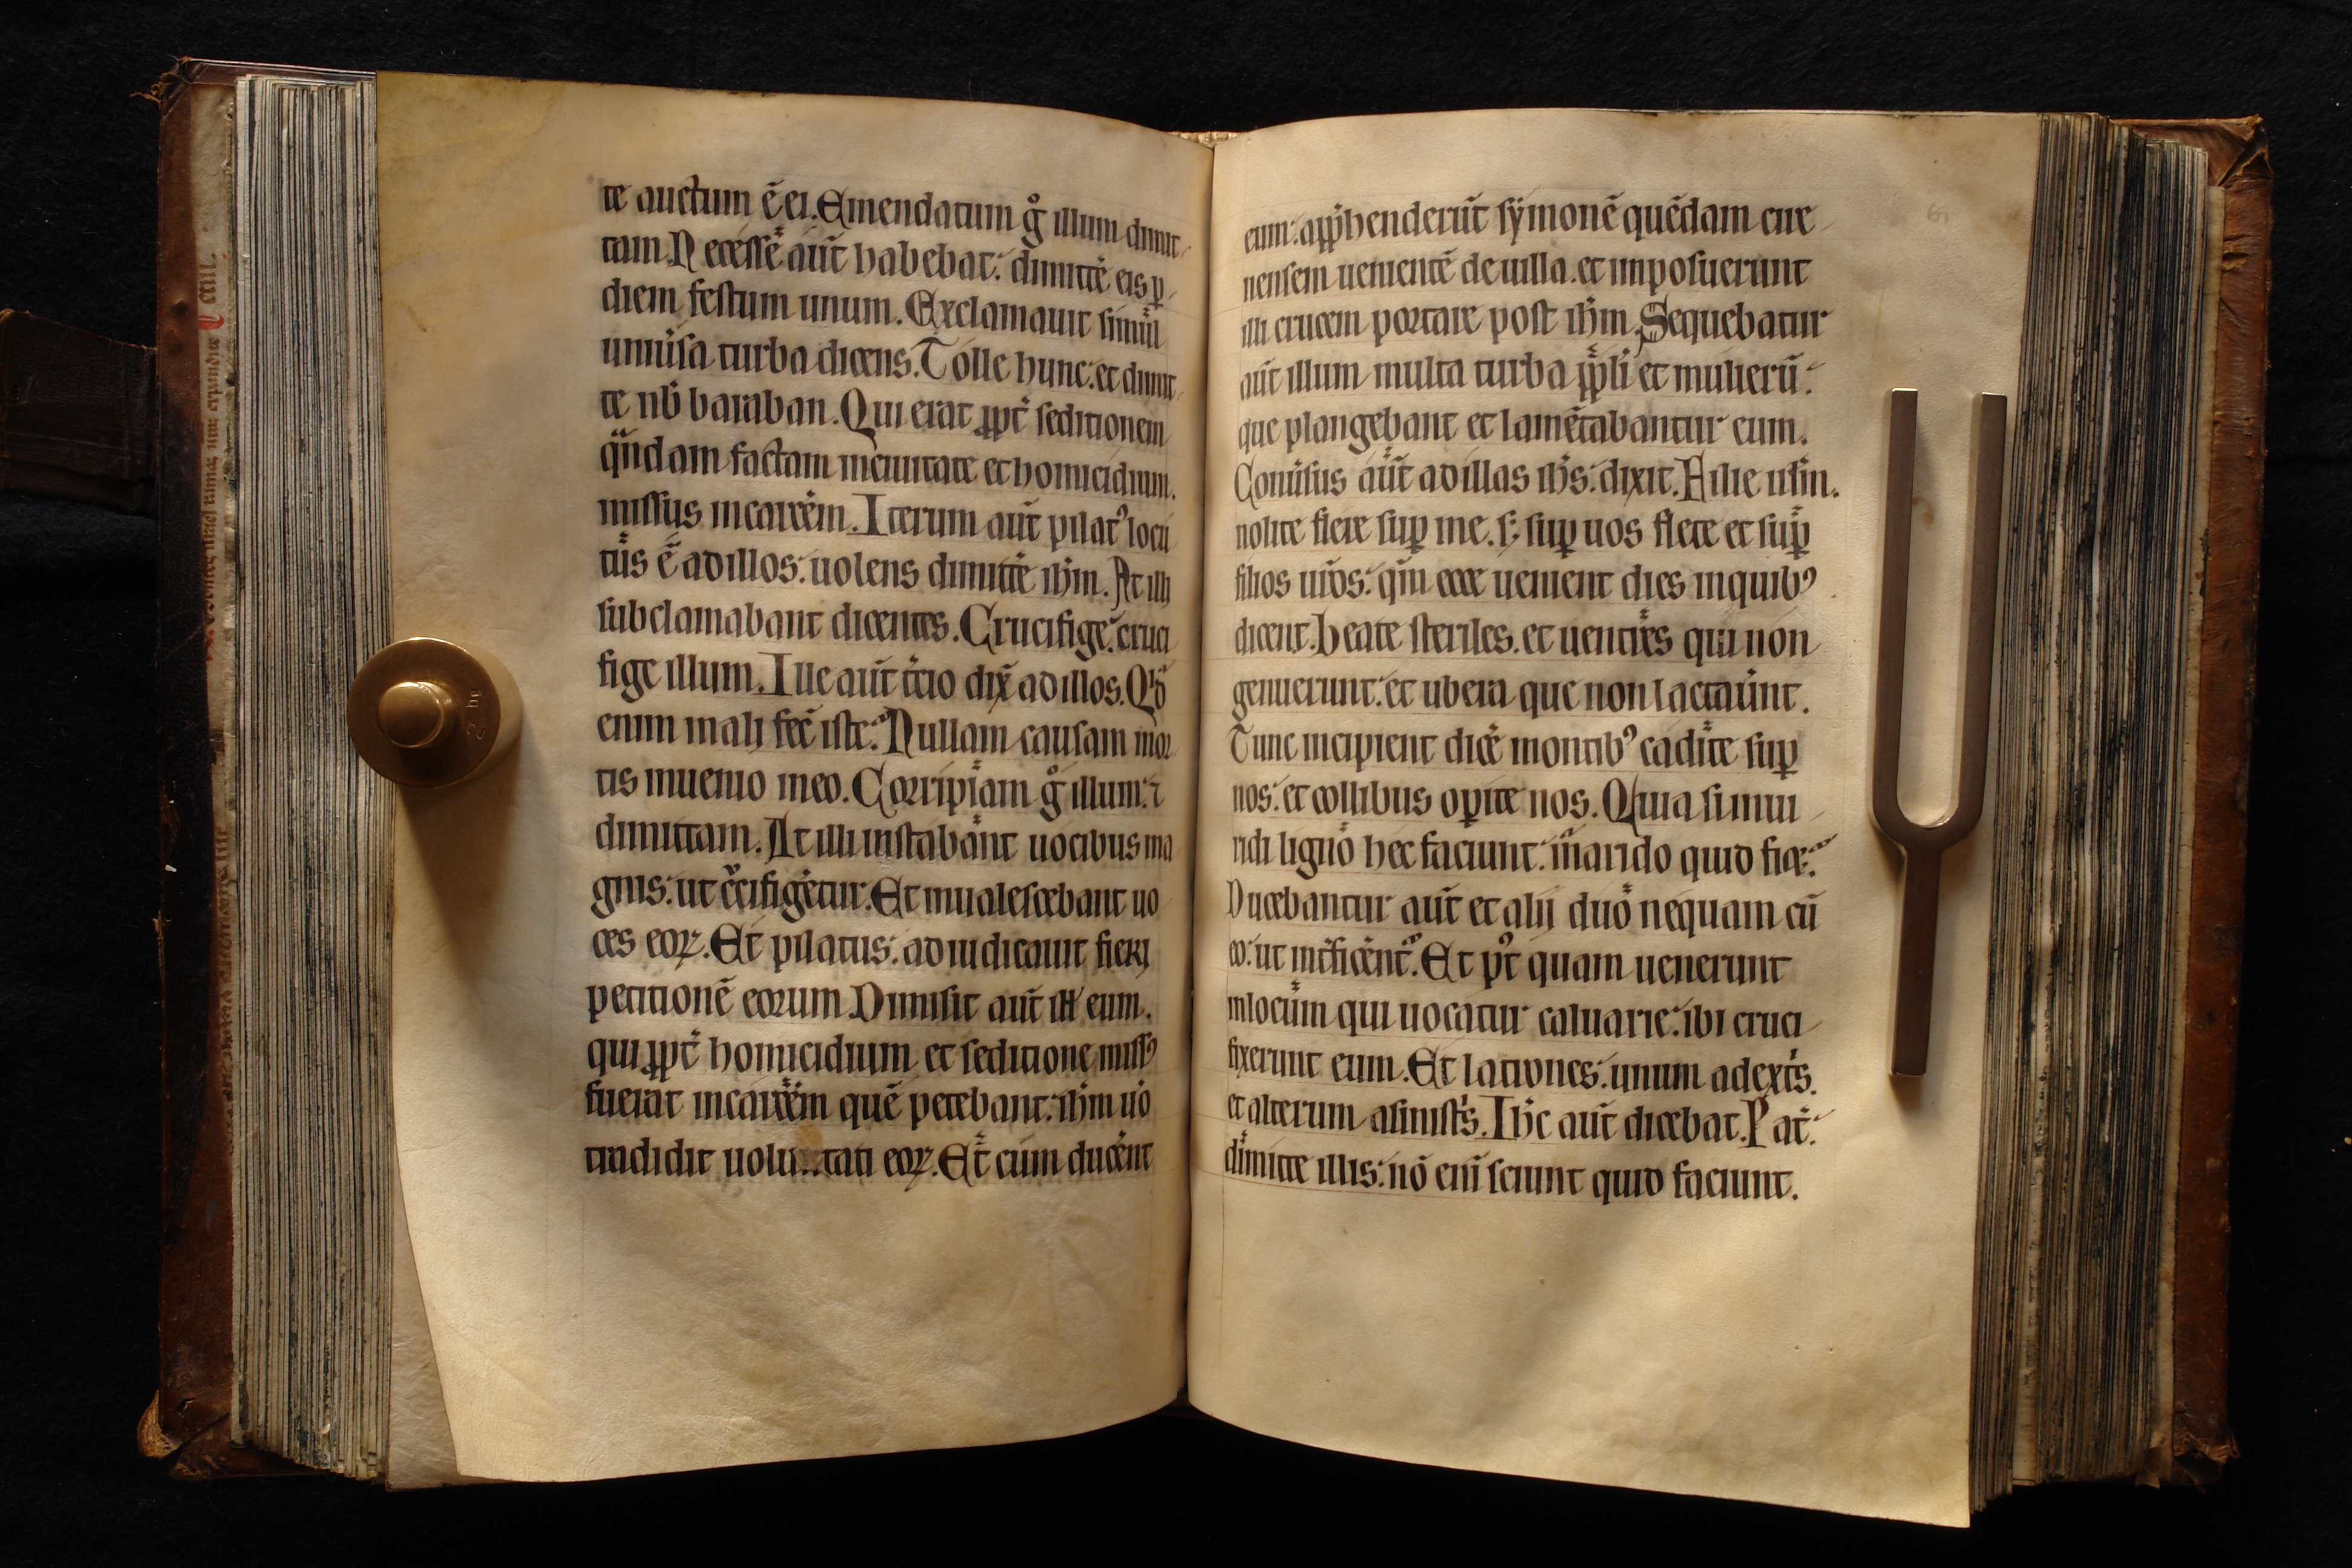 te auctum ē ei. Emendatum gͦ illum dimit
tam. Necesse aūt habebat: dimittē eis ꝑ
diem festum unum. Exclamauit simul
uniuͥsa turba dicens. Tolle hunc: et dimit
te nob̄ baraban. Qui erat ꝓpt̄ seditionem
qͣndam factam in ciuitate et homicidium.
missus in carcēm. Iterum aūt pilatꝰ locu
tus ē ad illos: uolens dimittē ih̄m. At illi
subclamabant dicentes. Crucifige: cruci
fige illum. Ille aūt t̄cio dix̄ ad illos. Qͥd
enim mali fec̄ iste: Nullam causam mor
tis inuenio in eo. Corripiam gͦ illum: ⁊
dimittam. At illi instabant uocibus ma
gnis: ut c̄cifigētur. Et inualescebant uo
ces eoꝝ. Et pilatus: adiudicauit fieri
petitionē eorum. Dimisit aūt ill' eum.
qui ꝓpt̄ homicidium et seditione missꝰ
fuerat in carcēm quē petebant: ih̄m uͦo
tradidit uolu..tati eoꝝ. Et cum ducēnt
eum: app̄henderūt sẏmonē quēdam cire
nensem uenientē de uilla. et imposuerunt
illi crucem portare post ih̄m. Sequebatur
aūt illum multa turba pp̄li et mulierū:
que plangebant et lamētabantur eum.
Conuͥsus aūt ad illas ih̄s: dixit. Filie irl̄m.
nolite flere suꝑ me. s; suꝑ uos flete et suꝑ
filios ur̄os: qm̄ ecce uenient dies in quibꝰ
dicent. Beate steriles. et uentres qui non
genuerunt: et ubera que non lactaūnt.
Tunc incipient dicē montibꝰ cadite suꝑ
nos: et collibus oꝑite nos. Quia si in ui
ridi ligno hec faciunt: in arido quid fiet:
Ducebantur aūt et alij duo nequam cū
eo: ut int̄ficēnt᷑. Et pꝰt quam uenerunt
in locum qui uocatur caluarie: ibi cruci
fixerunt eum. Et latrones: unum a dext̄s.
et alterum a sinist̄s. Ih̄c aūt dicebat. Pat̄:
dimitte illis: nō enī sciunt quid faciunt.